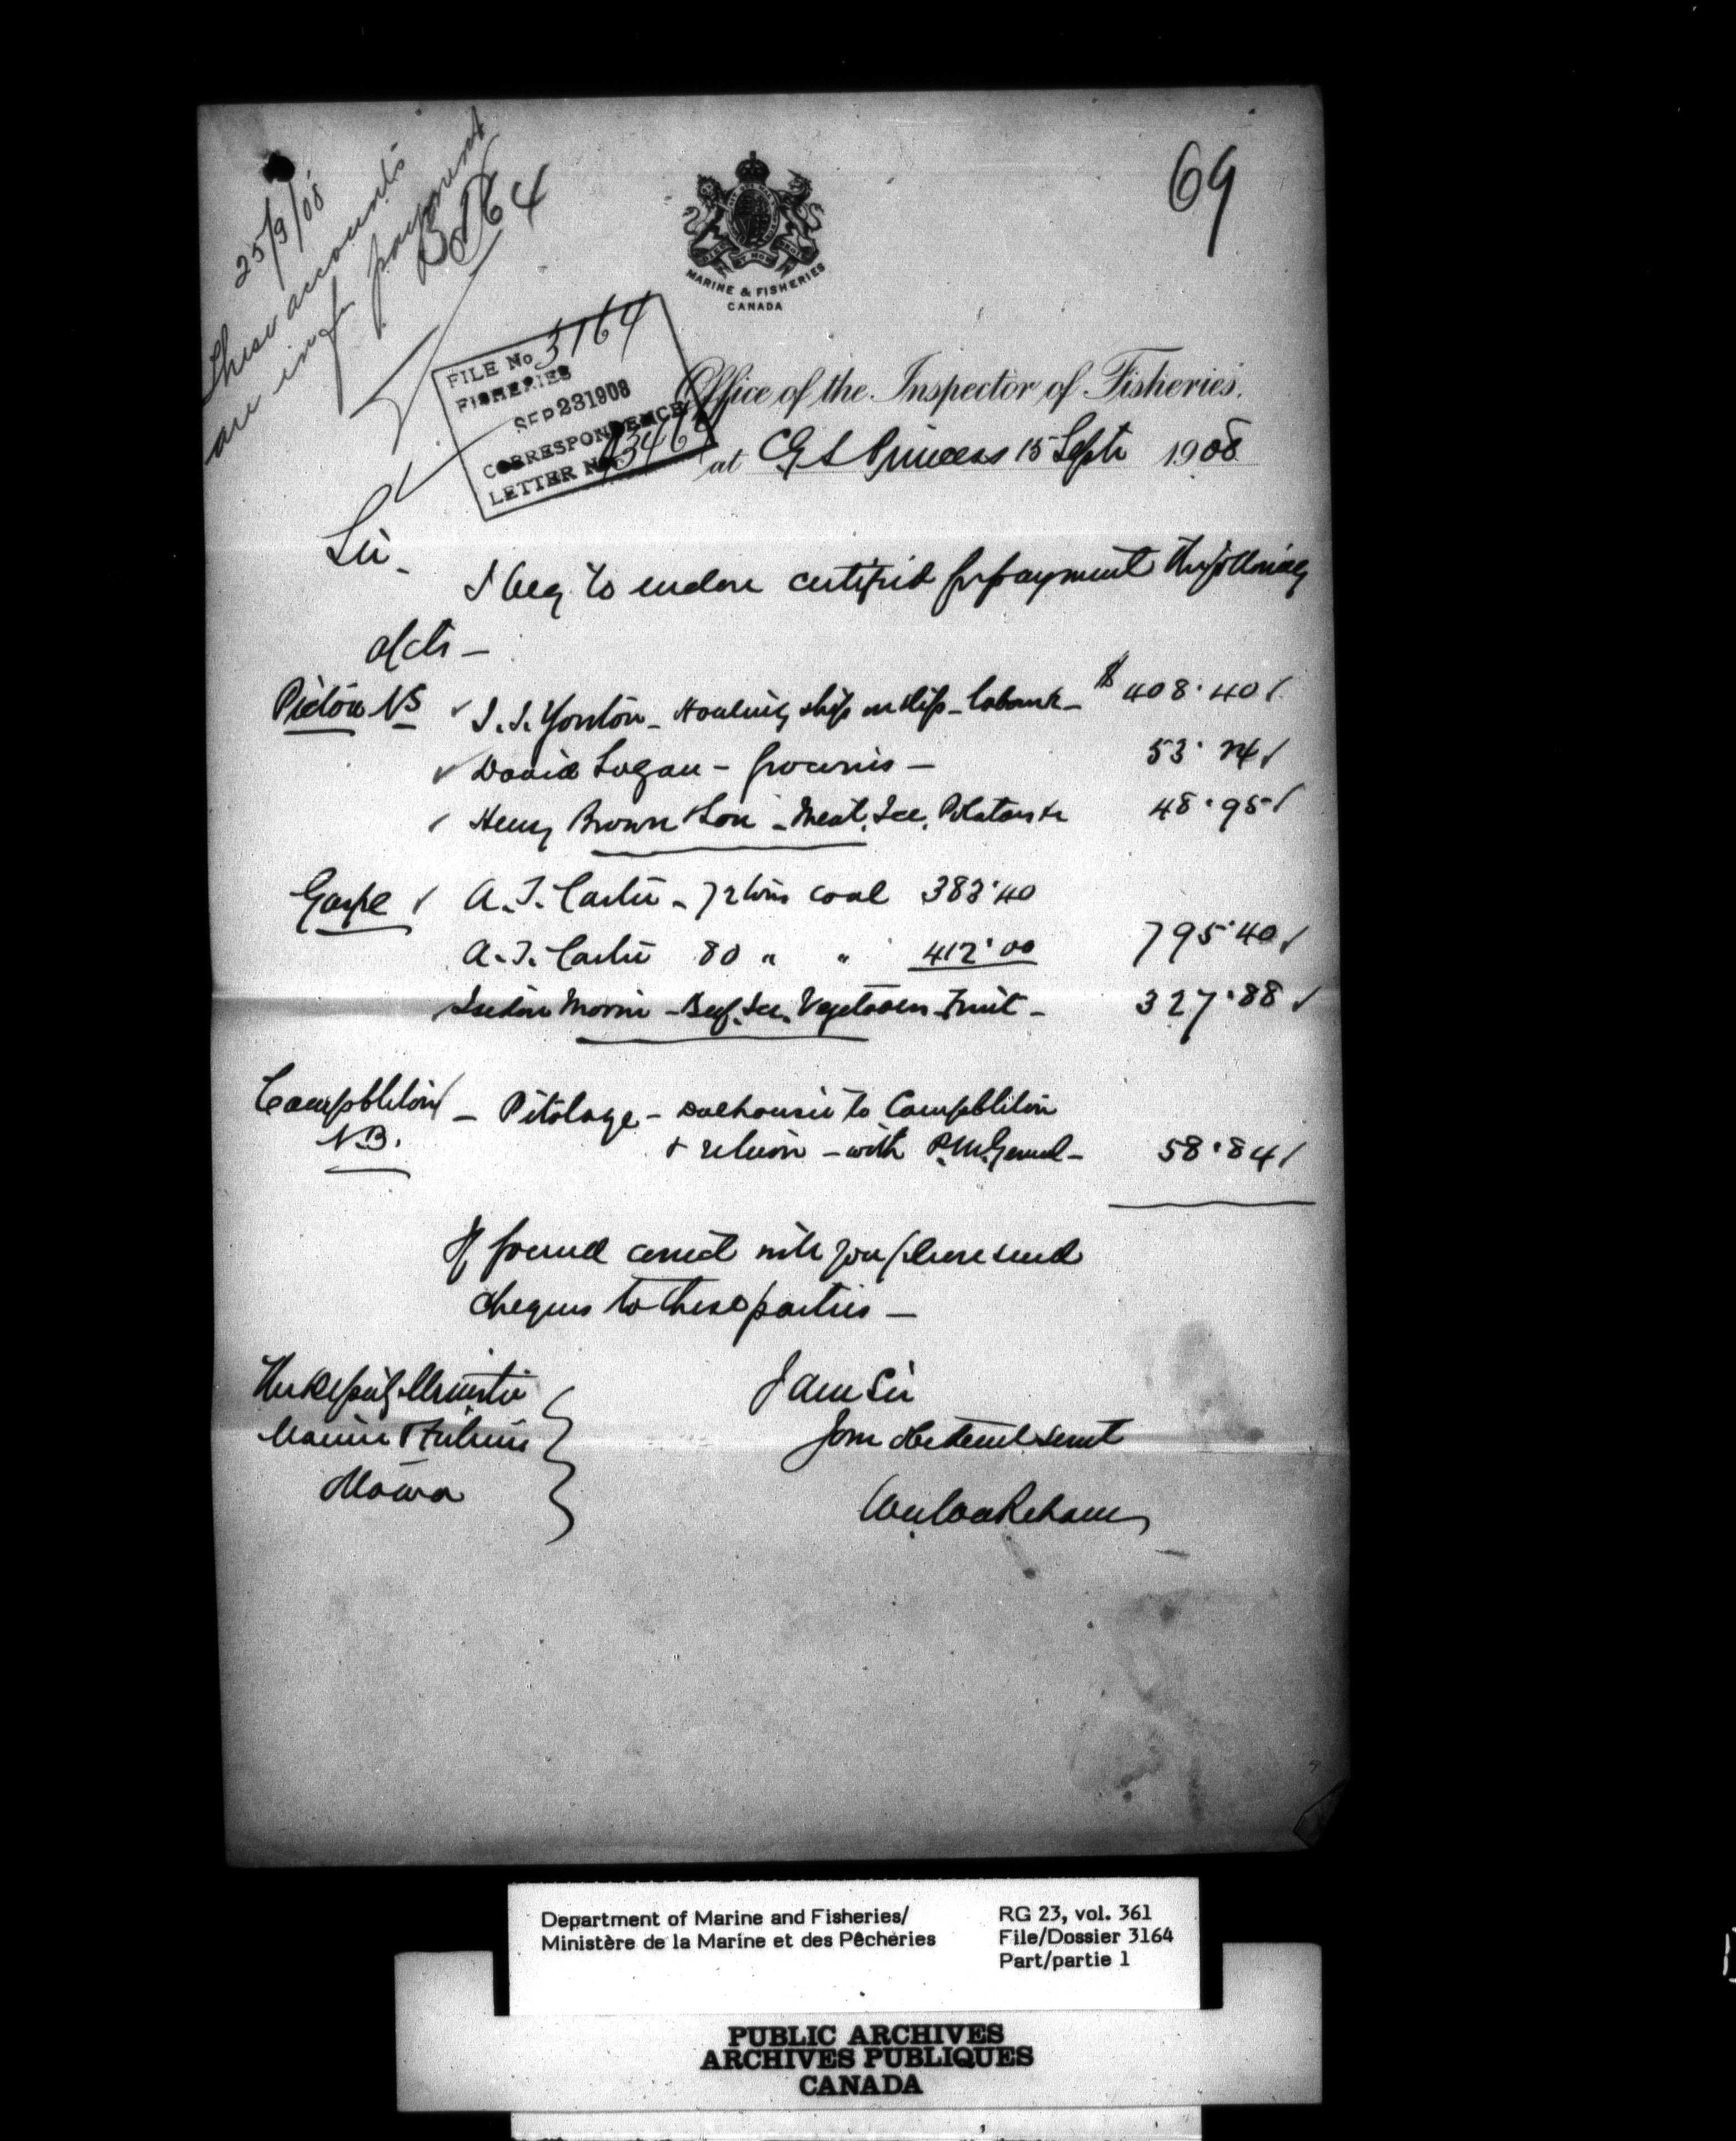 69
25/9/08
These accounts
are in f payment
3164
MARINE & FISHERIES
CANADA
FILE No 3164
FISHERIES
SEP 23 1908
CORRESPONDENCE
LETTER No
Office of the Inspector of Fisheries.
at CGS Princess 15 Septr 1908
Sir -
I beg to enclose certified for payment the following
a/cts -
Pictou NS J. J. Yorston - Hauling ship on slip - labour &c - $ 408.40
David Logan - Groceries - 53.74
Henry Brown & Son - Meat, Ice, Potatoes &c 48.95
Gaspe A. J. Carter - 72 tons coal 383.40
A. J. Carter 80 " " 412.00 795.40
Isidore Morin - Beef, Ice, Vegetables, Fruit - 327.88
Campbellton - Pilotage - Dalhousie to Campbellton
N.B. & return - with P.M. General - 58.84
If found correct will you please send
cheques to these parties -
The Deputy Minister
Marine & Fisheries
Ottawa
I am Sir
Your obedient servt
Wm Wakeham
Department of Marine and Fisheries/
Ministère de la Marine et des Pêcheries
RG 23, vol. 361
File/Dossier 3164
Part/partie 1
PUBLIC ARCHIVES
ARCHIVES PUBLIQUES
CANADA